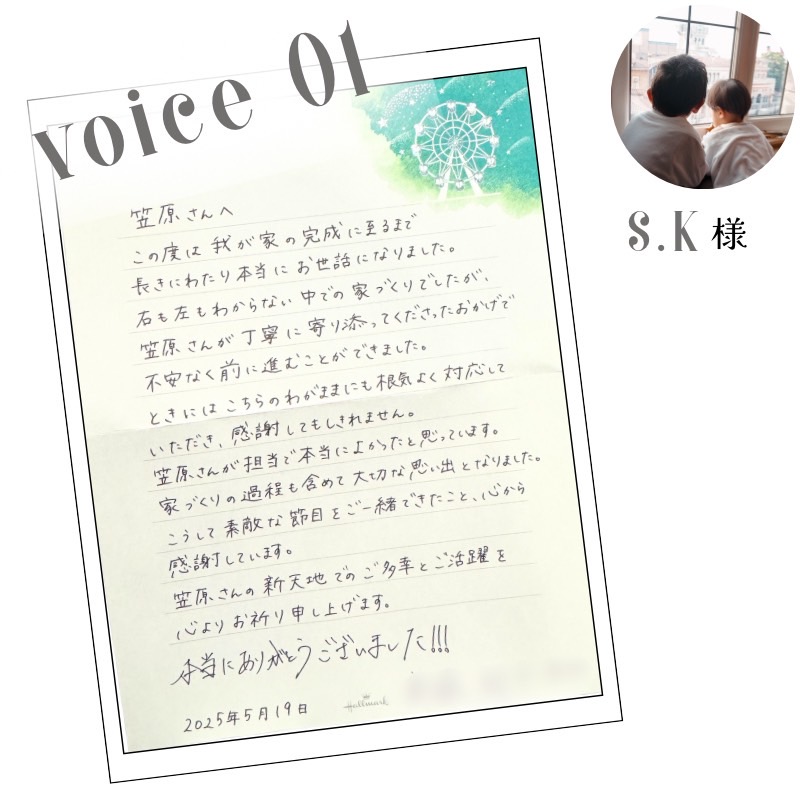 voice 01
S.K 様
笠原さんへ
この度は 我が家の完成に至るまで
長きにわたり本当に お世話になりました。
右も左もわからない 中での 家づくりでしたが、
笠原さんが 丁寧に 寄り添ってくださったおかげで
不安なく前に進むことができました。
ときには こちらのわがままにも根気よく 対応して
いただき、感謝してもしきれません。
笠原さんが担当で本当によかったと思っています。
家づくりの過程も含めて大切な思い出となりました。
こうして 素敵な節目をご一緒できたこと、心から
感謝しています。
笠原さんの 新天地でのご多幸とご活躍を
心よりお祈り申し上げます。
本当にありがとうございました!!!
2025年5月19日
Hallmark